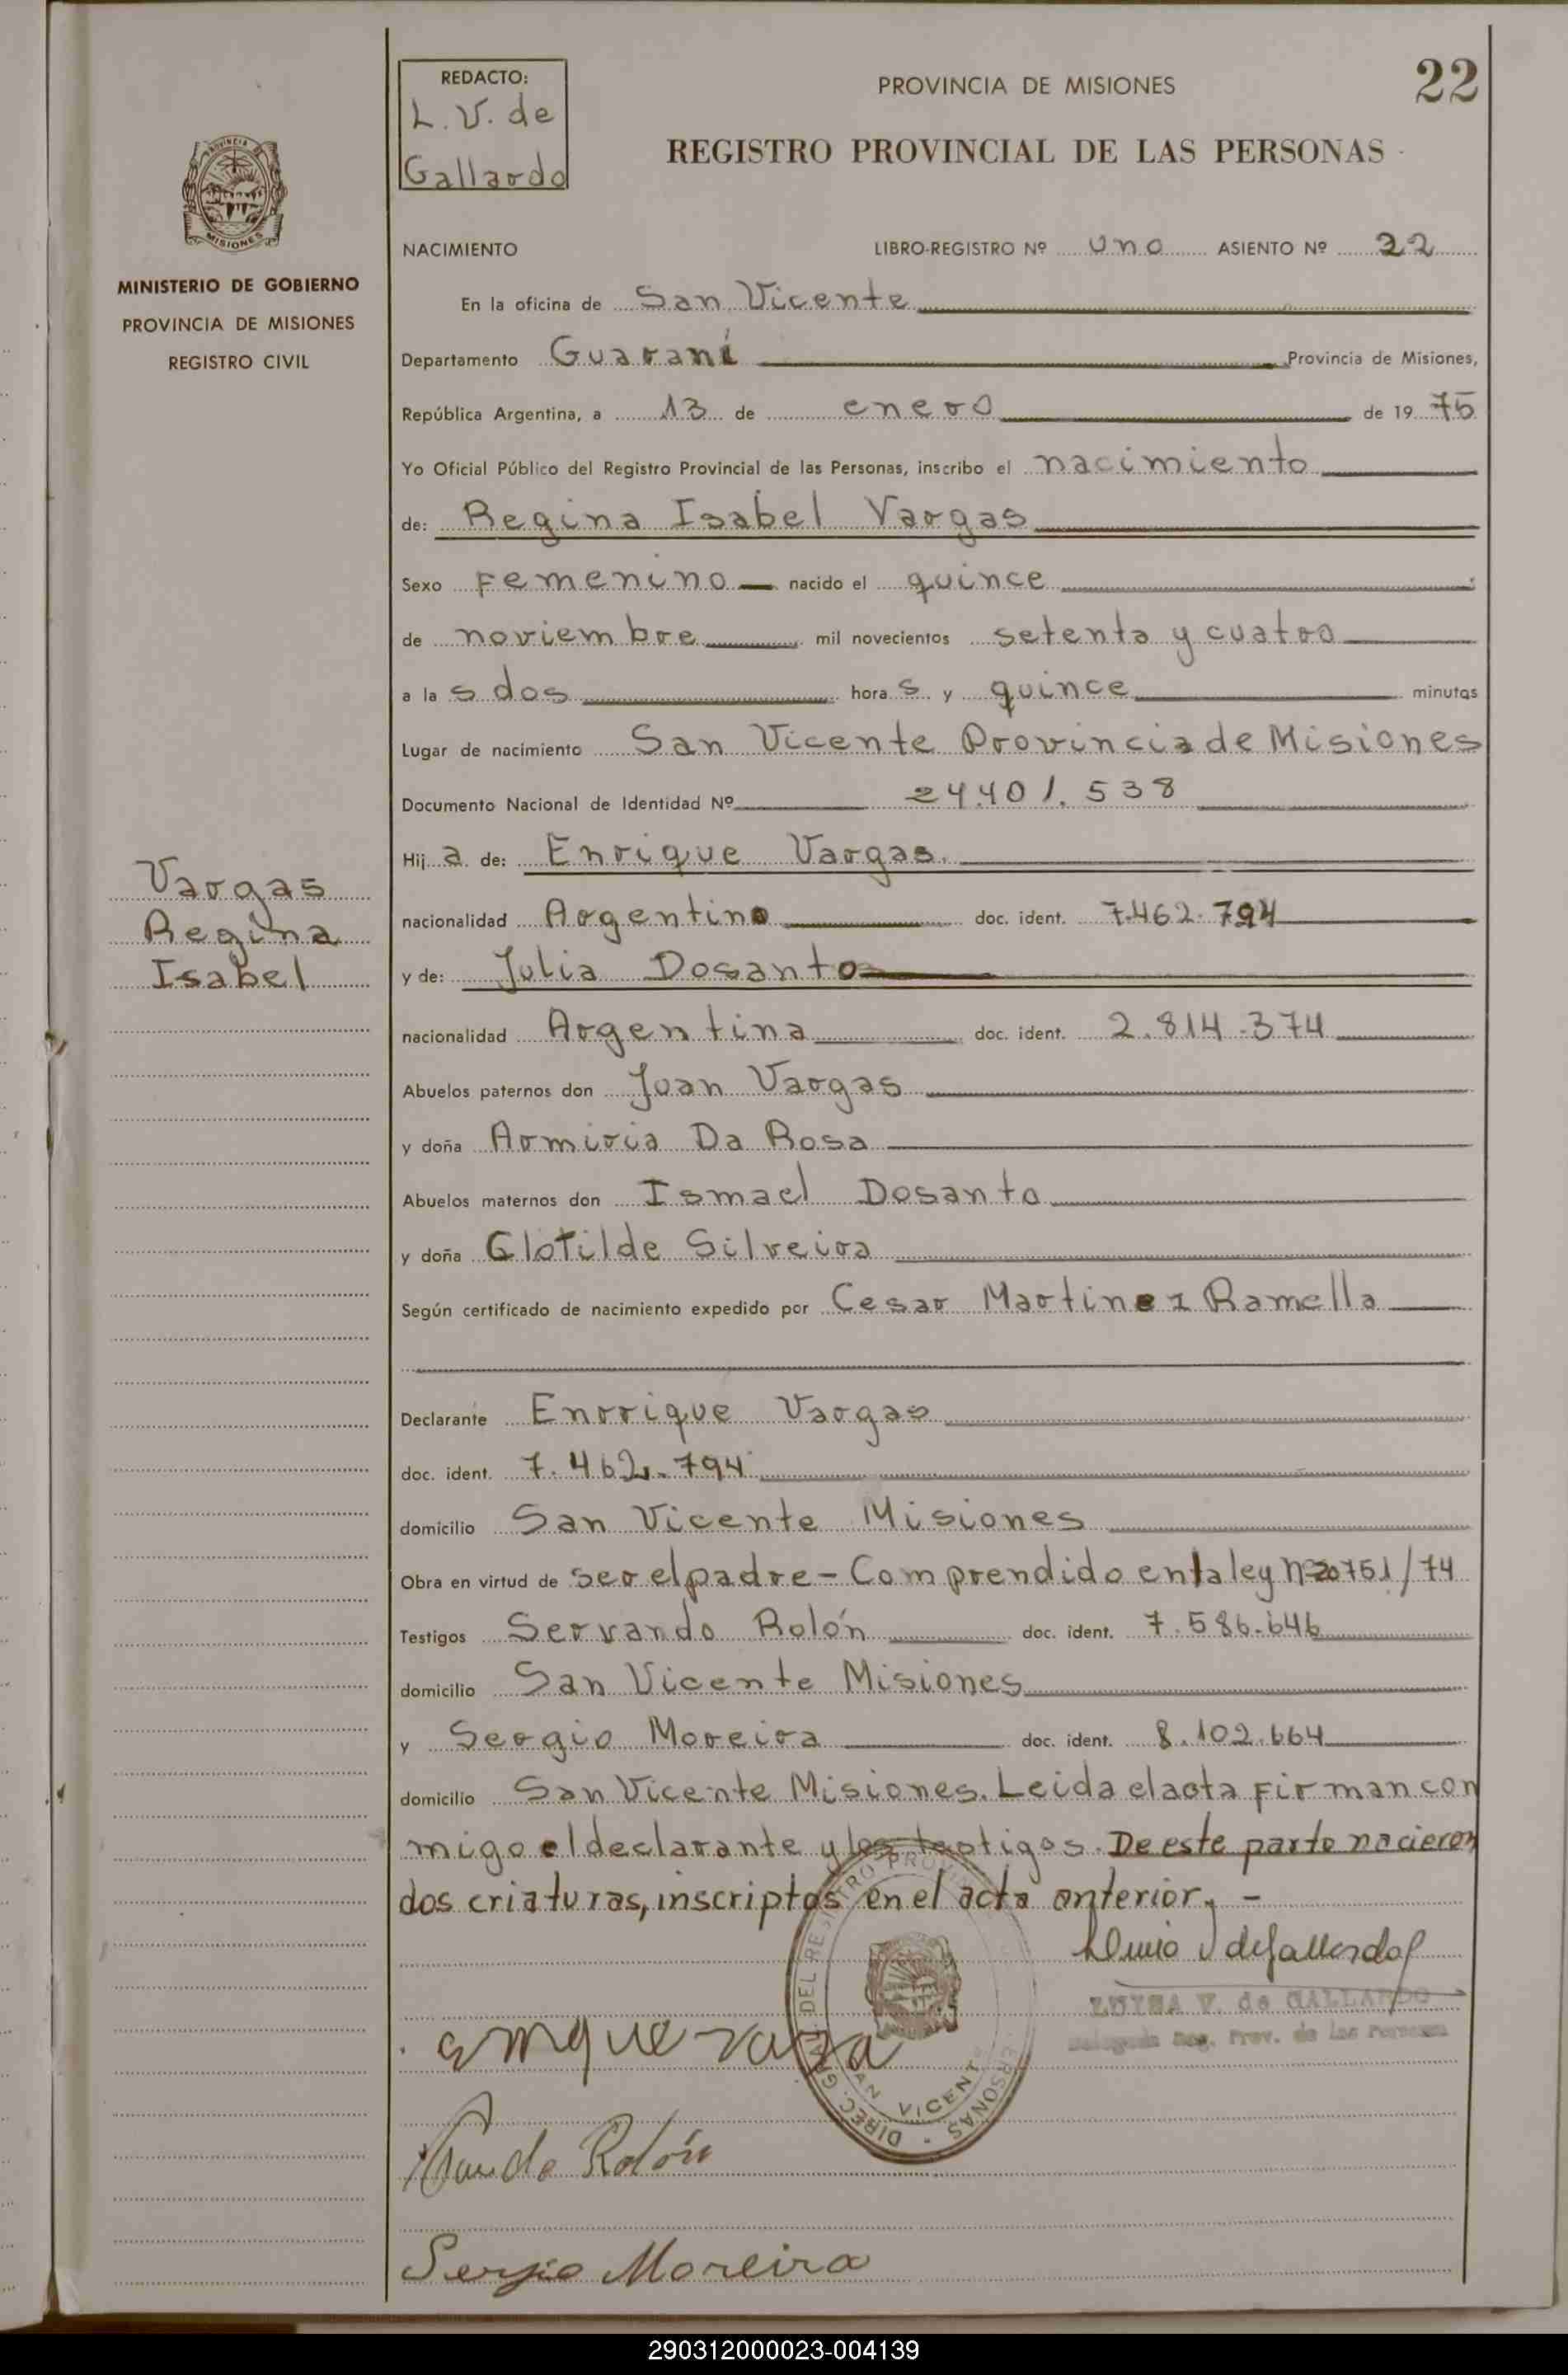 REDACTO:
L. V. de
Gallardo
PROVINCIA DE MISIONES
22
REGISTRO PROVINCIAL DE LAS PERSONAS
PROVINCIA DE
MISIONES
MINISTERIO DE GOBIERNO
PROVINCIA DE MISIONES
REGISTRO CIVIL
NACIMIENTO LIBRO-REGISTRO Nº uno ASIENTO Nº 22
En la oficina de San Vicente
Departamento Guaraní Provincia de Misiones,
República Argentina, a 13 de enero de 1975
Yo Oficial Público del Registro Provincial de las Personas, inscribo el nacimiento
de: Regina Isabel Vargas
Sexo Femenino nacido el quince
de noviembre mil novecientos setenta y cuatro
a las dos horas y quince minutos
Lugar de nacimiento San Vicente Provincia de Misiones
Documento Nacional de Identidad Nº 24.401.538
Hija de: Enrique Vargas.
nacionalidad Argentino doc. ident. 7.462.794
y de: Julia Dosanto
nacionalidad Argentina doc. ident. 2.814.374
Abuelos paternos don Juan Vargas
y doña Armiria Da Rosa
Abuelos maternos don Ismael Dosanto
y doña Clotilde Silveira
Según certificado de nacimiento expedido por Cesar Martinez Ramella
Declarante Enrrique Vargas
doc. ident. 7.462.794
domicilio San Vicente Misiones
Obra en virtud de ser el padre - Comprendido en la ley Nº 20751/74
Testigos Servando Rolón doc. ident. 7.586.646
domicilio San Vicente Misiones
y Sergio Moreira doc. ident. 8.102.664
domicilio San Vicente Misiones. Leida el acta Firman con
migo el declarante y los testigos. De este parto nacieron
dos criaturas, inscriptas en el acta anterior. -
Vargas
Regina
Isabel
DIREC. GRAL. DEL REGISTRO PROVINCIAL PERSONAS
SAN VICENTE
LUISA V. de GALLARDO
Delegada Reg. Prov. de las Personas
Rolón
Sergio Moreira
290312000023-004139